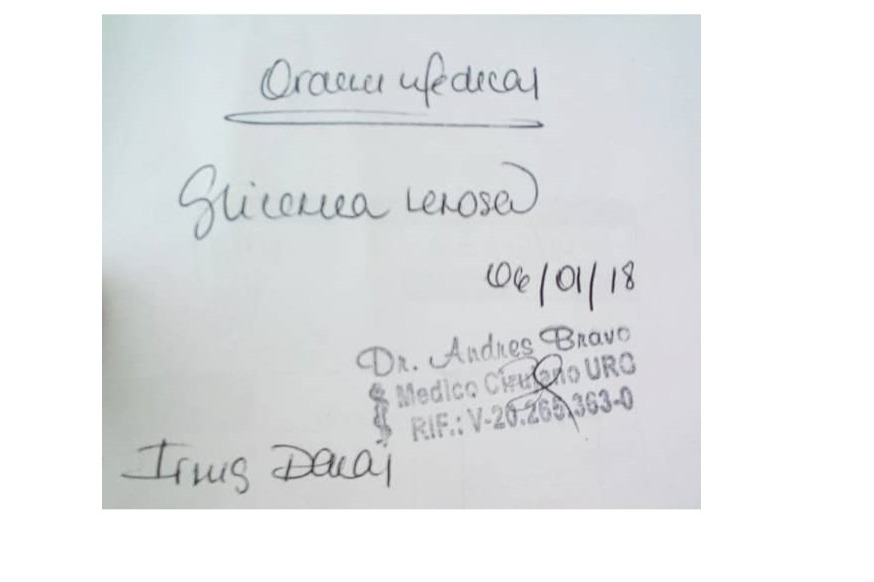 Orden Medica
Glicemia venosa
06/01/18
Dr. Andres Bravo
Medico Cirujano URO
RIF.: V-20.265.363-0